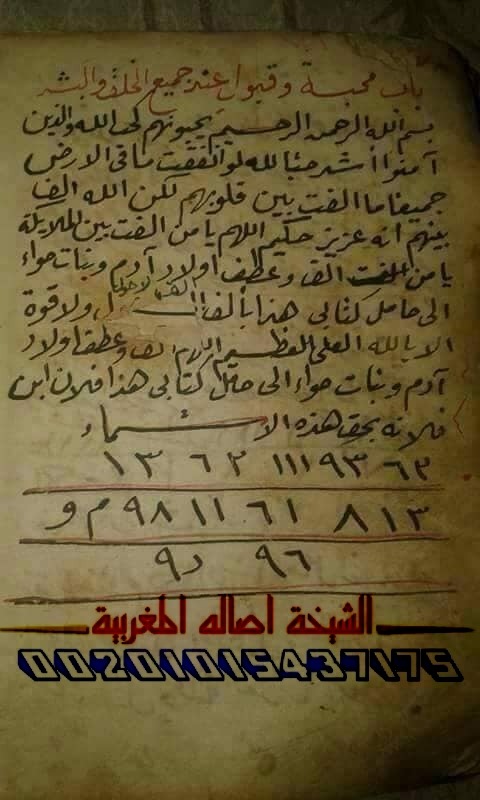 باب محبة وقبول عند جميع الخلق والبشر
بسم الله الرحمن الرحيم يحبونهم كحب الله والذين
آمنوا اشد حبا لله لو انفقت ما فى الارض
جميعا ما الفت بين قلوبهم لكن الله الف
بينهم انه عزيز حكيم اللهم يا من الفت بين الملايكة
يا من الفت الف وعطف اولاد آدم وبنات حواء
الى حامل كتابى هذا بألف ولا قوة
الا بالله العلى العظيم اللهم الف وعطف اولاد
آدم وبنات حواء الى حامل كتابى هذا فلان ابن
فلانه بحق هذه الاسماء
١٣ ٦ ٢ ١١١ ٩٣ ٦٢
٨ ١٣ ٦١ ١١ ٩٨ م و
٩٦ د٩
الشيخة اصاله المغربية
00201015437175